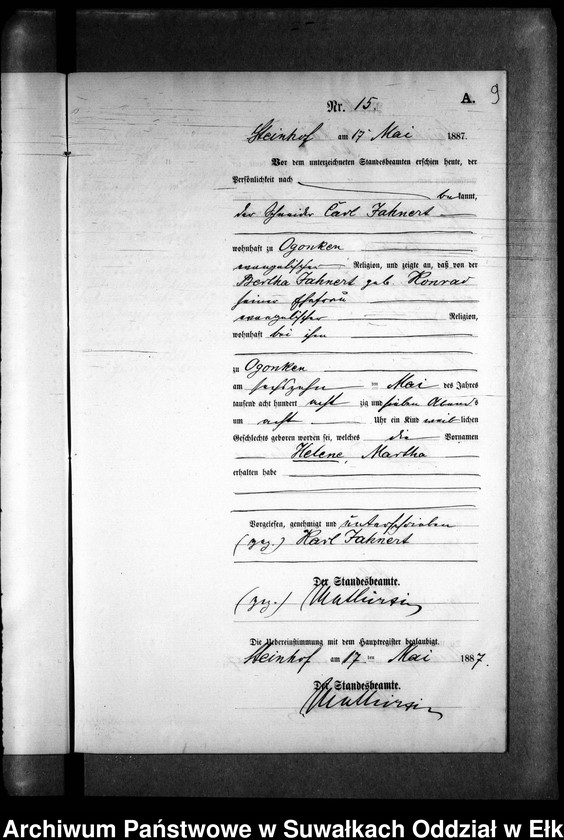 A. 9
Nr. 15.
Steinhof am 17 Mai 1887.
Vor dem unterzeichneten Standesbeamten erschien heute, der
Persönlichkeit nach
bekannt,
der Schneider Carl Jahnert
wohnhaft zu Ogonken
evangelischer Religion, und zeigte an, daß von der
Bertha Jahnert geb. Konrad
seiner Ehefrau
evangelischer Religion,
wohnhaft bei ihm
zu Ogonken
am sechszehn ten Mai des Jahres
tausend acht hundert acht zig und sieben Abends
um acht Uhr ein Kind weib lichen
Geschlechts geboren worden sei, welches die Vornamen
Helene, Martha
erhalten habe
Vorgelesen, genehmigt und unterschrieben
(gez.) Karl Jahnert
Der Standesbeamte.
(gez.)
Die Uebereinstimmung mit dem Hauptregister beglaubigt.
Steinhof am 17 ten Mai 1887.
Der Standesbeamte.
Archiwum Państwowe w Suwałkach Oddział w Ełk